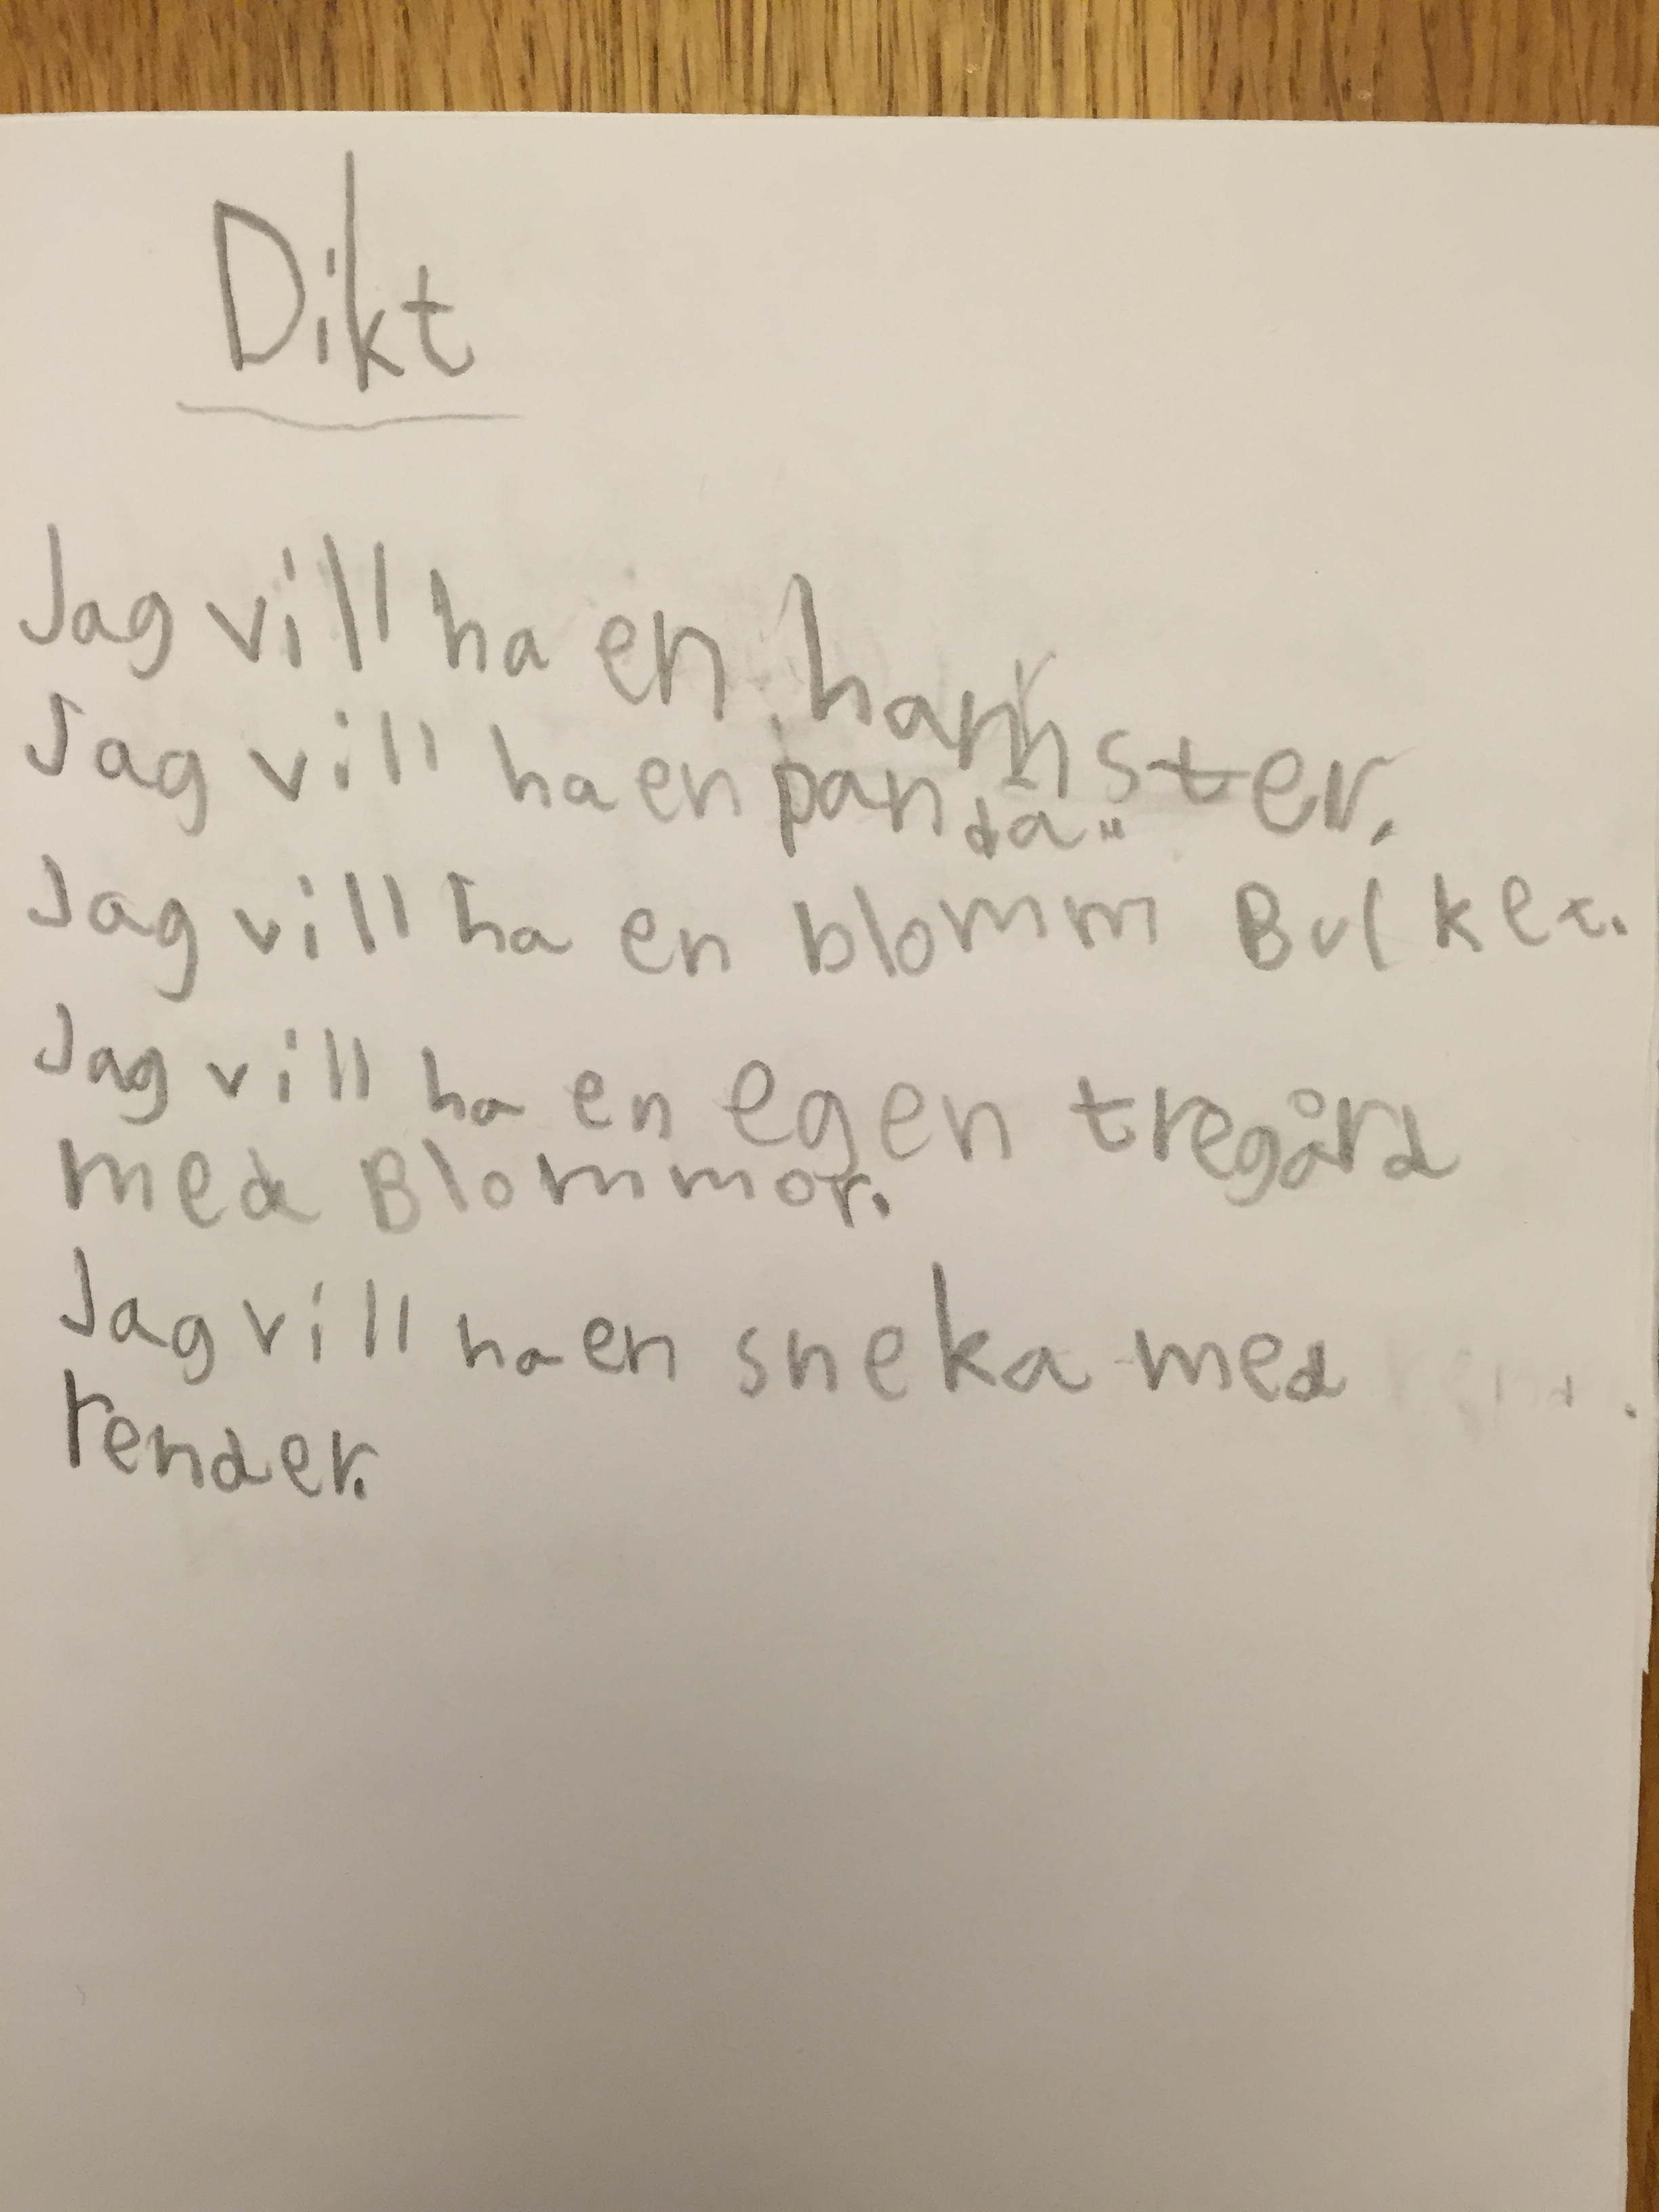 Dikt
Jag vill ha en hamster.
Jag vill ha en panda.
Jag vill ha en blomm Bulket.
Jag vill ha en egen tregård
med Blommor.
Jag vill ha en sneka med
render.